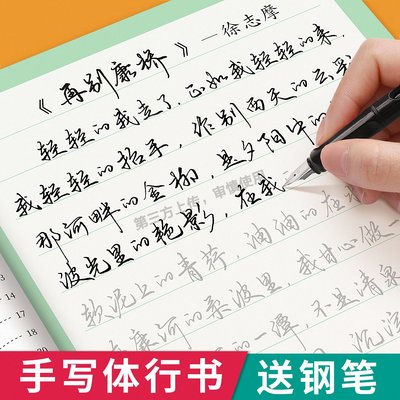 《再别康桥》—徐志摩
轻轻的我走了，正如我轻轻的来，
我轻轻的招手，作别西天的云彩
那河畔的金柳，是夕阳中的
波光里的艳影，在我
第三方上传，审慎使用
软泥上的青荇，油油的在
河的柔波里，我甘心做一
的一潭，不是清泉
沉淀
14
17
18
20
手写体行书 送钢笔